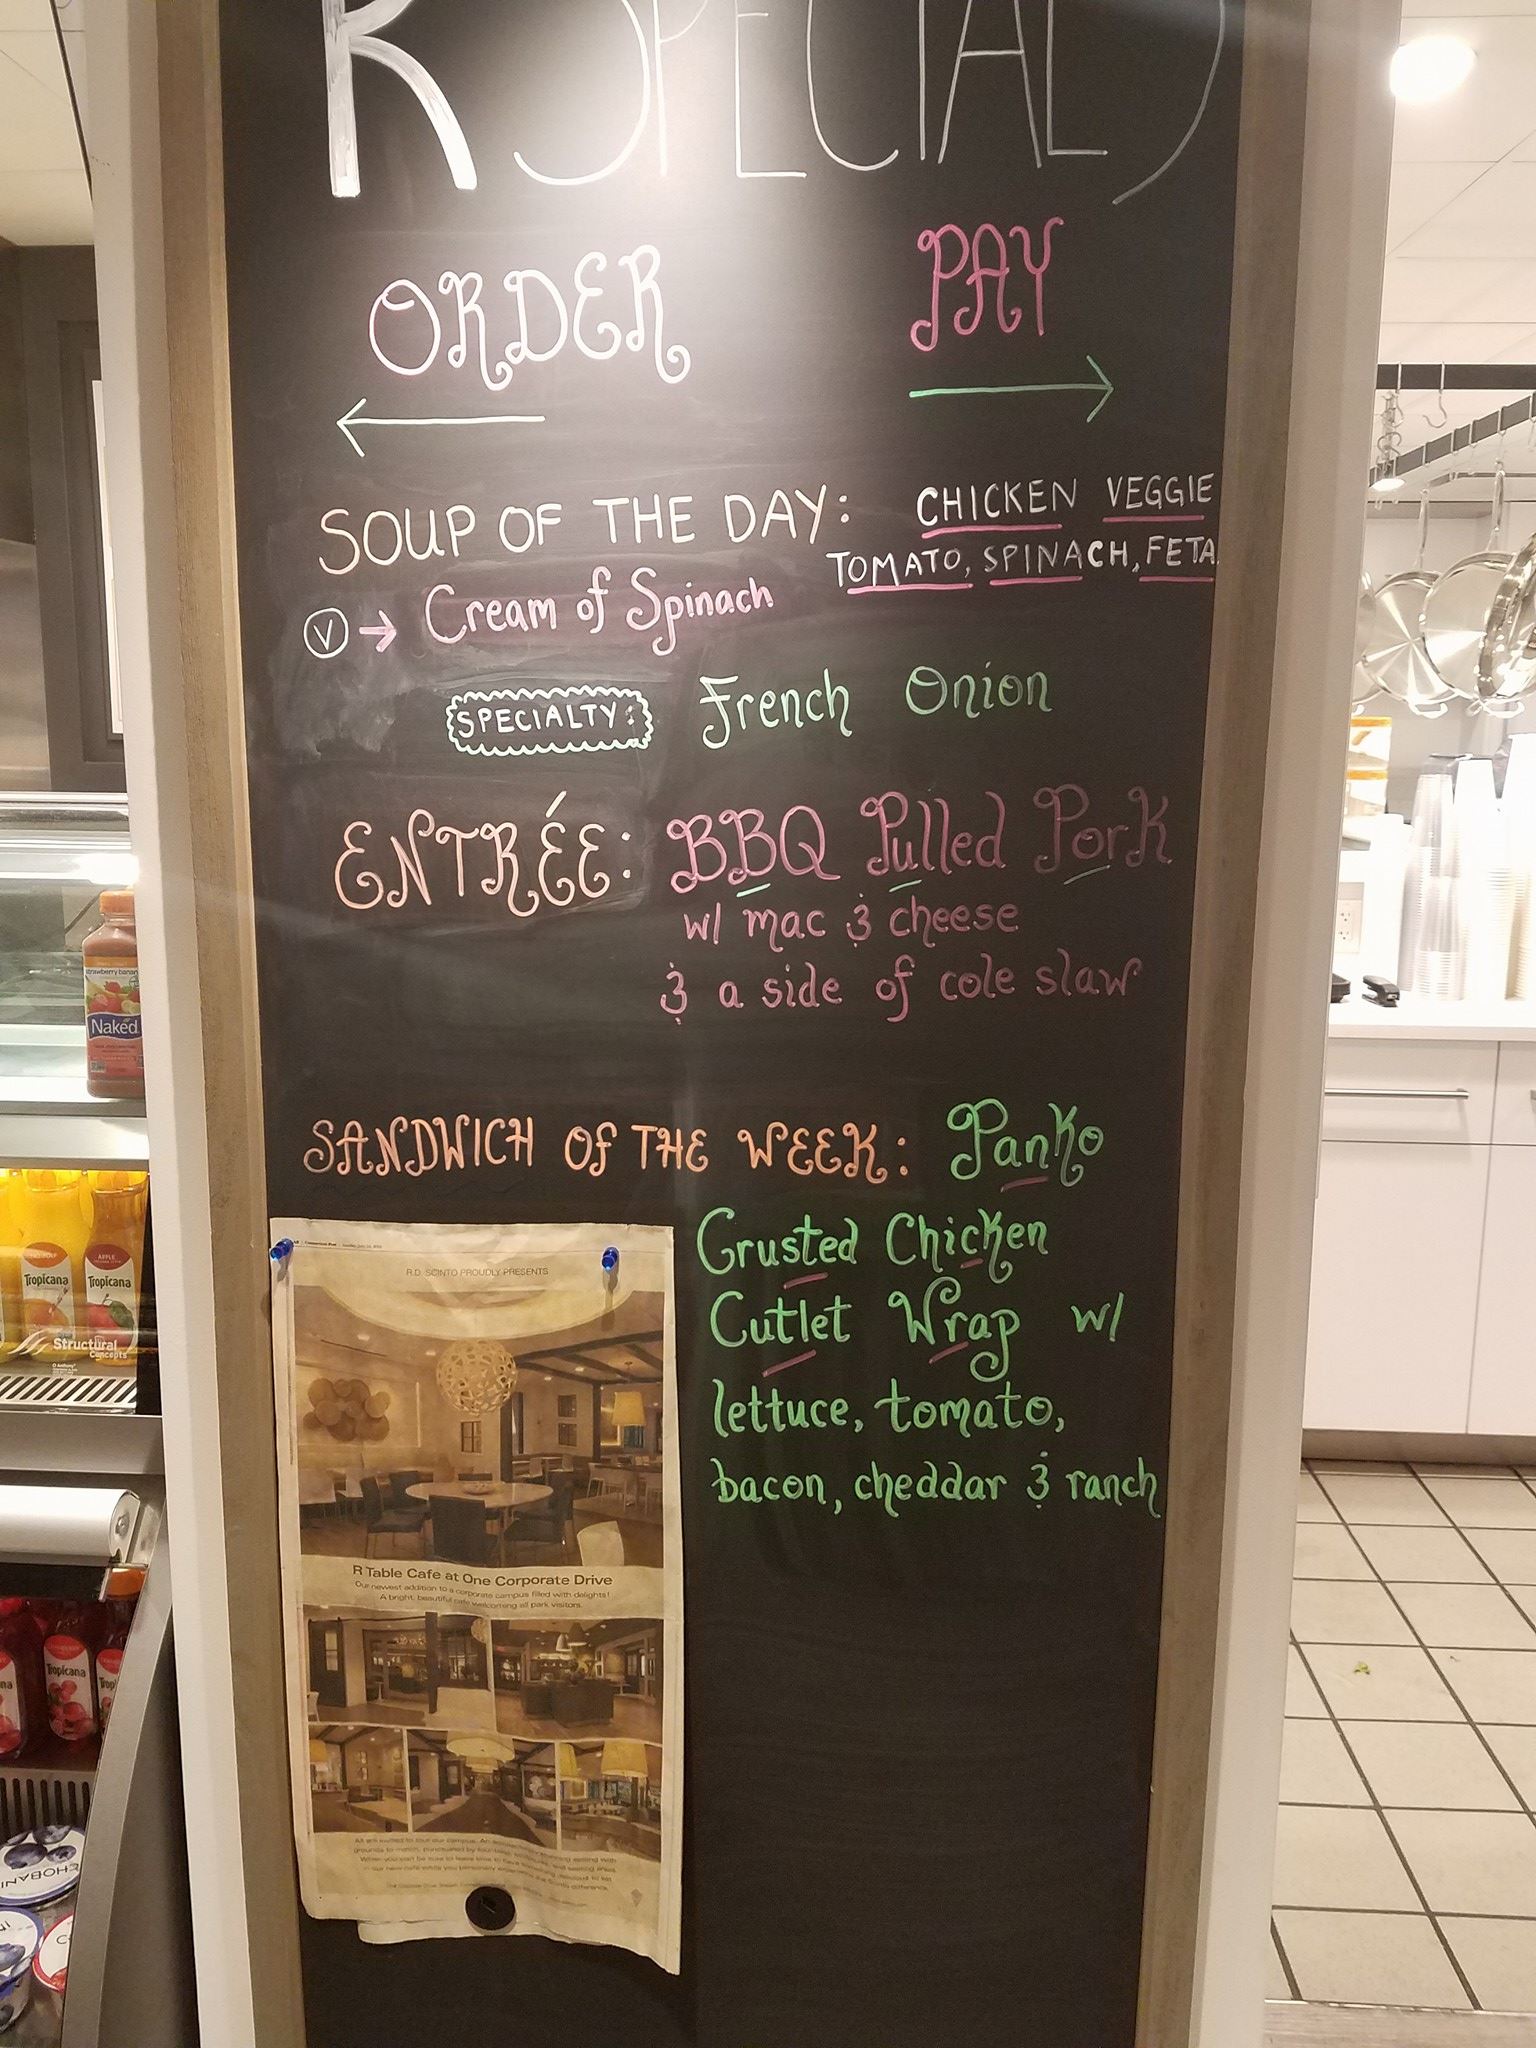 R SPECIALS
ORDER
PAY
SOUP OF THE DAY: CHICKEN VEGGIE
TOMATO, SPINACH, FETA
V → Cream of Spinach
SPECIALTY: French Onion
ENTRÉE: BBQ Pulled Pork
w/ mac & cheese
& a side of cole slaw
SANDWICH OF THE WEEK: Panko
Crusted Chicken
Cutlet Wrap w/
lettuce, tomato,
bacon, cheddar & ranch
R.D. SCINTO PROUDLY PRESENTS
R Table Cafe at One Corporate Drive
Our newest addition to a corporate campus filled with delights!
A bright, beautiful cafe welcoming all park visitors.
strawberry banana
Naked
APPLE
Tropicana
Tropicana
Structural
Concepts
Tropicana
CHOBANI